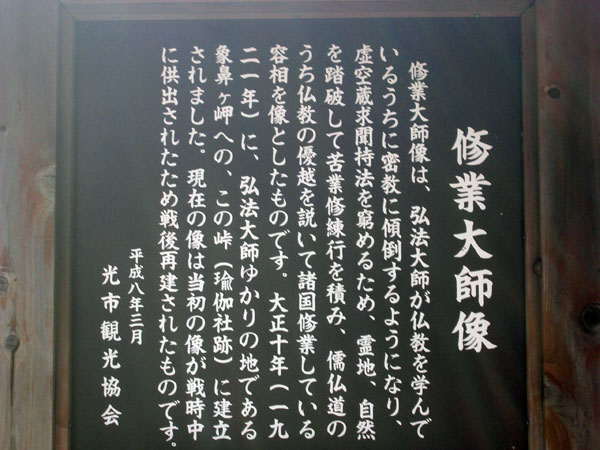 修業大師像
修業大師像は、弘法大師が仏教を学んで
いるうちに密教に傾倒するようになり、
虚空蔵求聞持法を窮めるため、霊地、自然
を踏破して苦業修練行を積み、儒仏道の
うち仏教の優越を説いて諸国修業している
容相を像としたものです。大正十年（一九
二一年）に、弘法大師ゆかりの地である
象鼻ヶ岬への、この峠（瑜伽社跡）に建立
されました。現在の像は当初の像が戦時中
に供出されたため戦後再建されたものです。
平成八年三月
光市観光協会